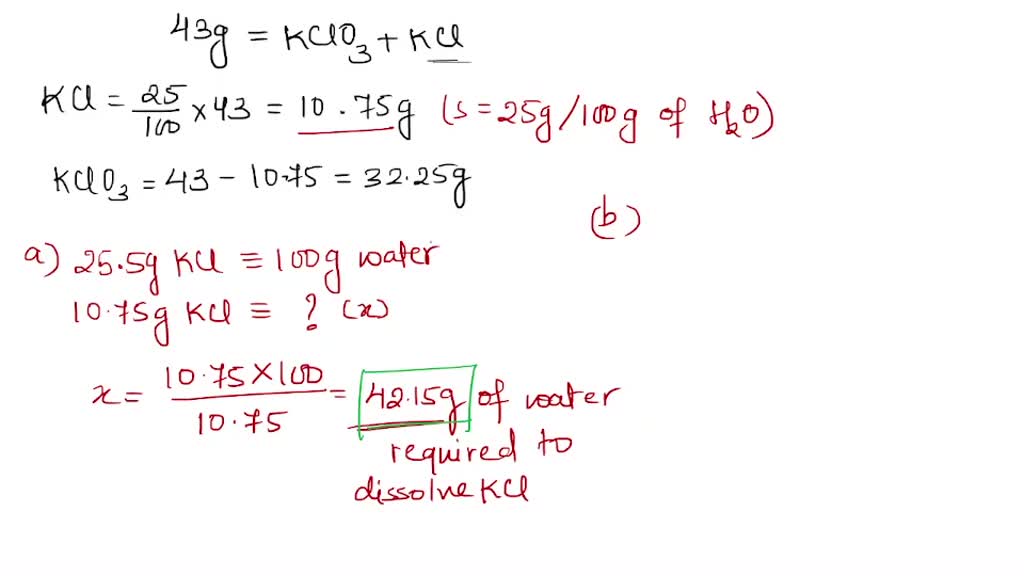 43g = KClO3 + KCl
KCl = 25/100 × 43 = 10.75g (s = 25g/100g of H2O)
KClO3 = 43 - 10.75 = 32.25g
(b)
a) 25.5g KCl ≡ 100g water
10.75g KCl ≡ ? (x)
x = 10.75 × 100 / 10.75 = 42.15g of water
required to
dissolve KCl